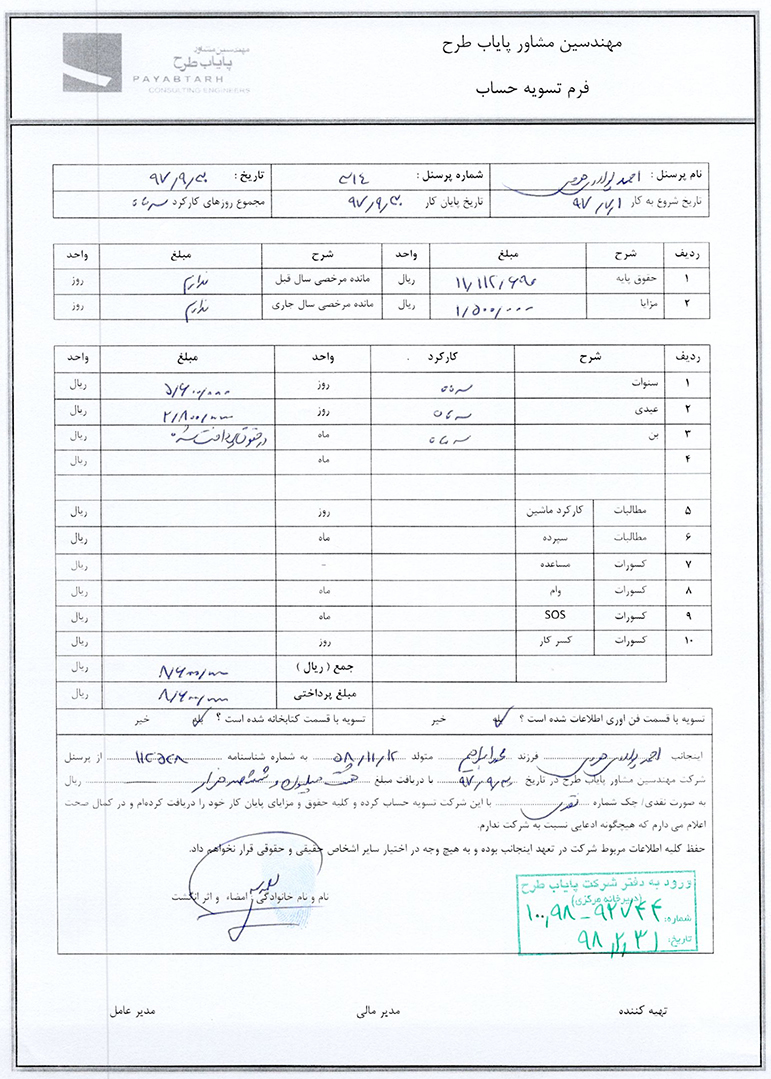 مهندسین مشاور پایاب طرح
فرم تسویه حساب
مهندسین مشاور
پایاب طرح
PAYABTARH
CONSULTING ENGINEERS
نام پرسنل : احمد شماره پرسنل : ۳۱۴ تاریخ : ۹۷/۹/۳۰
تاریخ شروع به کار ۹۷/۷/۱ تاریخ پایان کار ۹۷/۹/۳۰ مجموع روزهای کارکرد سه ماه
ردیف شرح مبلغ واحد شرح مبلغ واحد
۱ حقوق پایه ریال مانده مرخصی سال قبل ندارم روز
۲ مزایا ۱/۵۰۰/۰۰۰ ریال مانده مرخصی سال جاری ندارم روز
ردیف شرح کارکرد واحد مبلغ واحد
۱ سنوات سه ماه روز ۵/۶۰۰/۰۰۰ ریال
۲ عیدی سه ماه روز ۲/۸۰۰/۰۰۰ ریال
۳ بن سه ماه ماه ریال
۴ ماه ریال
۵ مطالبات کارکرد ماشین روز ریال
۶ مطالبات سپرده ماه ریال
۷ کسورات مساعده - ریال
۸ کسورات وام ماه ریال
۹ کسورات SOS ماه ریال
۱۰ کسورات کسر کار روز ریال
جمع ( ریال ) ۸/۶۰۰/۰۰۰ ریال
مبلغ پرداختی ۸/۶۰۰/۰۰۰ ریال
تسویه با قسمت فن اوری اطلاعات شده است ؟ بله خیر تسویه با قسمت کتابخانه شده است ؟ بله خیر
اینجانب احمد فرزند محمدابراهیم متولد ۵۸/۱۱/۱۲ به شماره شناسنامه از پرسنل
شرکت مهندسین مشاور پایاب طرح در تاریخ ۹۷/۹/۳۰ با دریافت مبلغ هشت میلیون و ششصد هزار ریال
به صورت نقدی/ چک شماره نقدی با این شرکت تسویه حساب کرده و کلیه حقوق و مزایای پایان کار خود را دریافت کرده‌ام و در کمال صحت
اعلام می دارم که هیچگونه ادعایی نسبت به شرکت ندارم.
حفظ کلیه اطلاعات مربوط شرکت در تعهد اینجانب بوده و به هیچ وجه در اختیار سایر اشخاص حقیقی و حقوقی قرار نخواهم داد.
نام و نام خانوادگی امضاء و اثر انگشت
ورود به دفتر شرکت پایاب طرح
(دبیرخانه مرکزی)
شماره: ۱۰۰,۹۸-۹۲۷۴۴
تاریخ: ۹۸/۲/۳۱
تهیه کننده مدیر مالی مدیر عامل